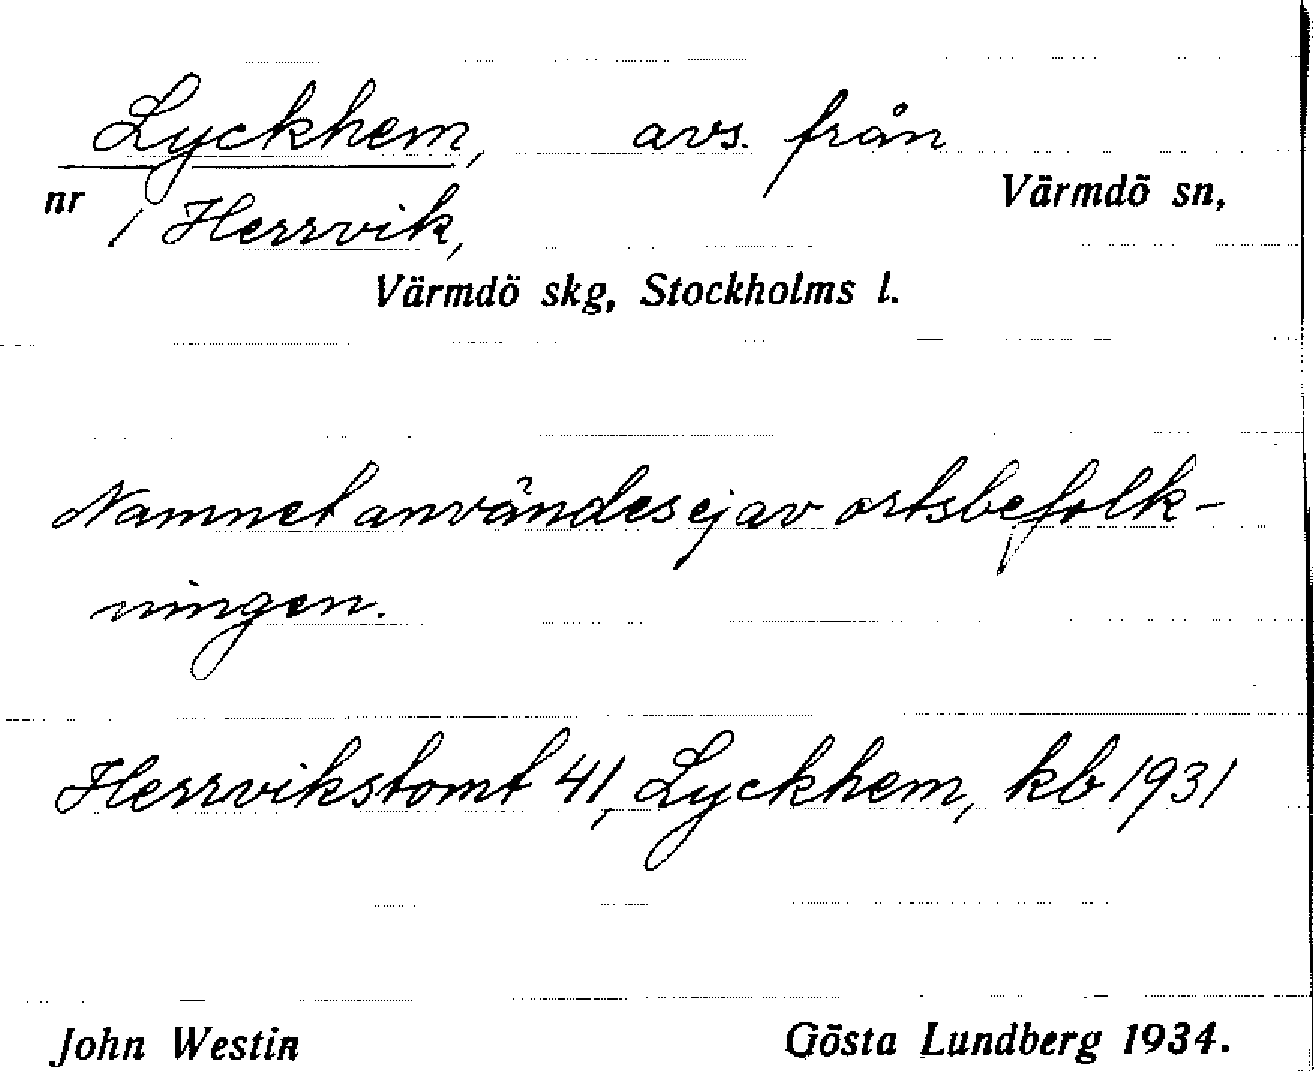 Lyckhem, avs. från
Värmdö sn,
nr 1 Herrvik,
Värmdö skg, Stockholms l.
Namnet användes ej av ortsbefolk-
ningen.
Herrvikstomt 41, Lyckhem, kb 1931
John Westin Gösta Lundberg 1934.